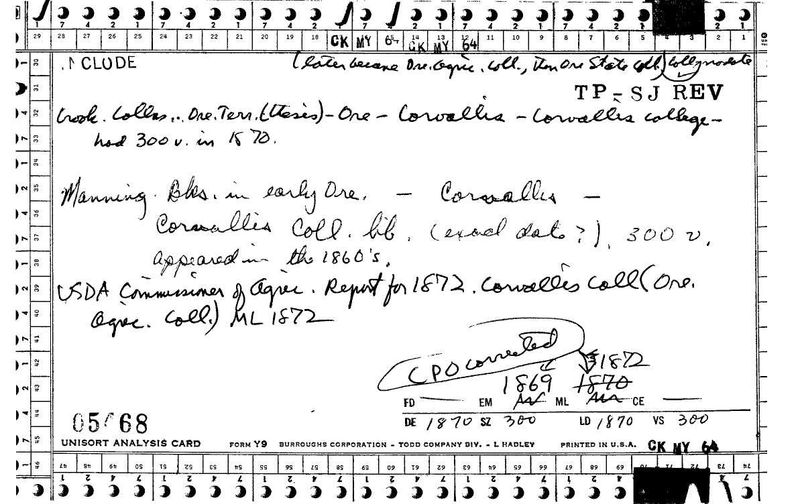 29 28 27 26 25 24 23 22 21 20 19 18 17 16 15 14 13 12 11 10 9 8 7 6 5 4 3 2 1
CK MY 64 CK MY 64
.NCLUDE
(later became Ore. Agric. Coll., then Ore State Coll.)
TP-SJ REV
Crook. Collns.. Ore. Terr. (thesis) - Ore - Corvallis - Corvallis college -
had 300 v. in 1870.
Manning. Bks. in early Ore. - Corvallis -
Corvallis Coll. lib. (exact date?), 300 v.
appeared in the 1860's.
USDA Commissioner of Agric. Report for 1872. Corvallis Coll (Ore.
Agric. Coll.) ML 1872
CPO corrected
1872
1869 1870
FD — EM ML CE —
DE 1870 SZ 300 LD 1870 VS 300
05/68
UNISORT ANALYSIS CARD FORM Y9 BURROUGHS CORPORATION - TODD COMPANY DIV. - L HADLEY PRINTED IN U.S.A. CK MY 64